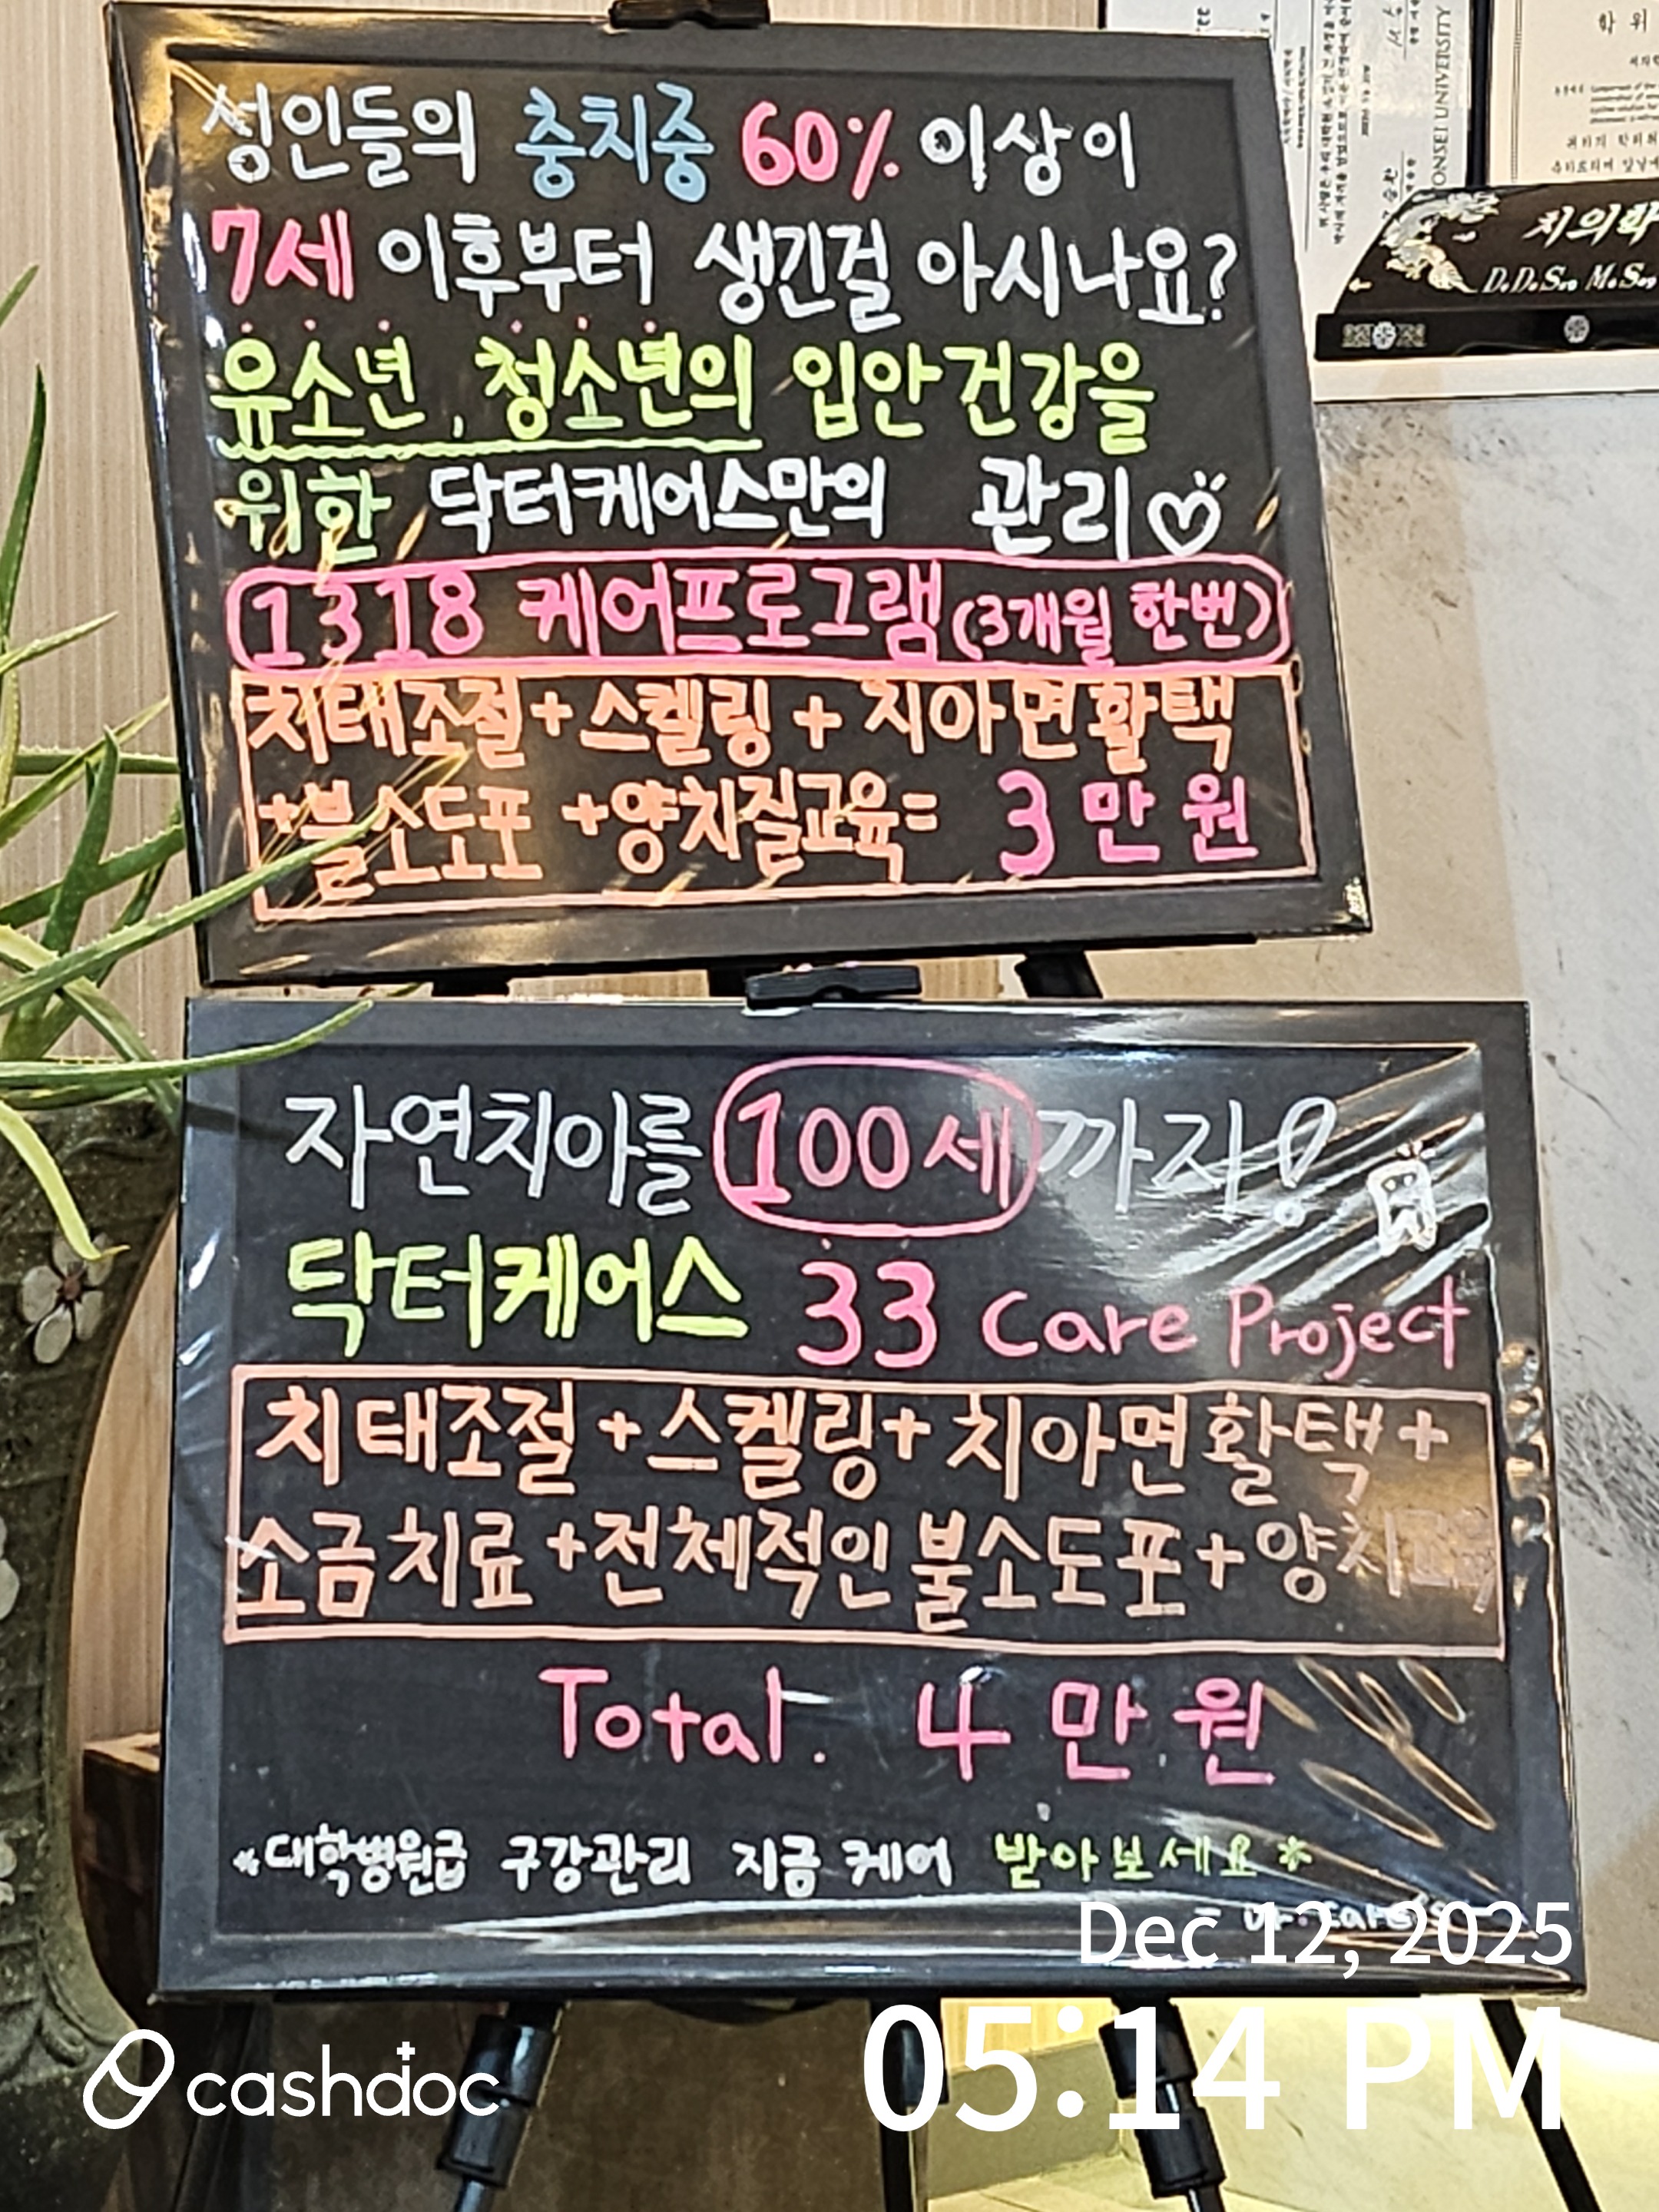 성인들의 충치중 60% 이상이
7세 이후부터 생긴걸 아시나요?
유소년, 청소년의 입안건강을
위한 닥터케어스만의 관리♡
1318 케어프로그램(3개월 한번)
치태조절+스켈링+치아면활택
+불소도포+양치질교육= 3만원
자연치아를 100세까지!
닥터케어스 33 Care Project
치태조절+스켈링+치아면활택+
소금치료+전체적인불소도포+양치교육
Total. 4만원
*대학병원급 구강관리 지금 케어 받아보세요*
YONSEI UNIVERSITY
학위
치의학
D.D.S., M.S.,
Dec 12, 2025
05:14 PM
cashdoc